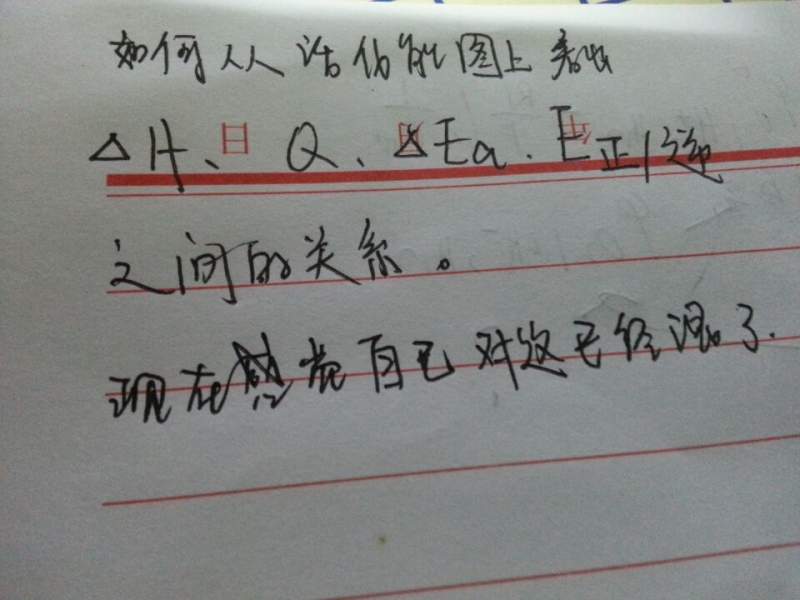 如何从活化能图上看出
△H、日 Q、△Ea、E正/逆
之间的关系。
现在感觉自己对这已经混了.